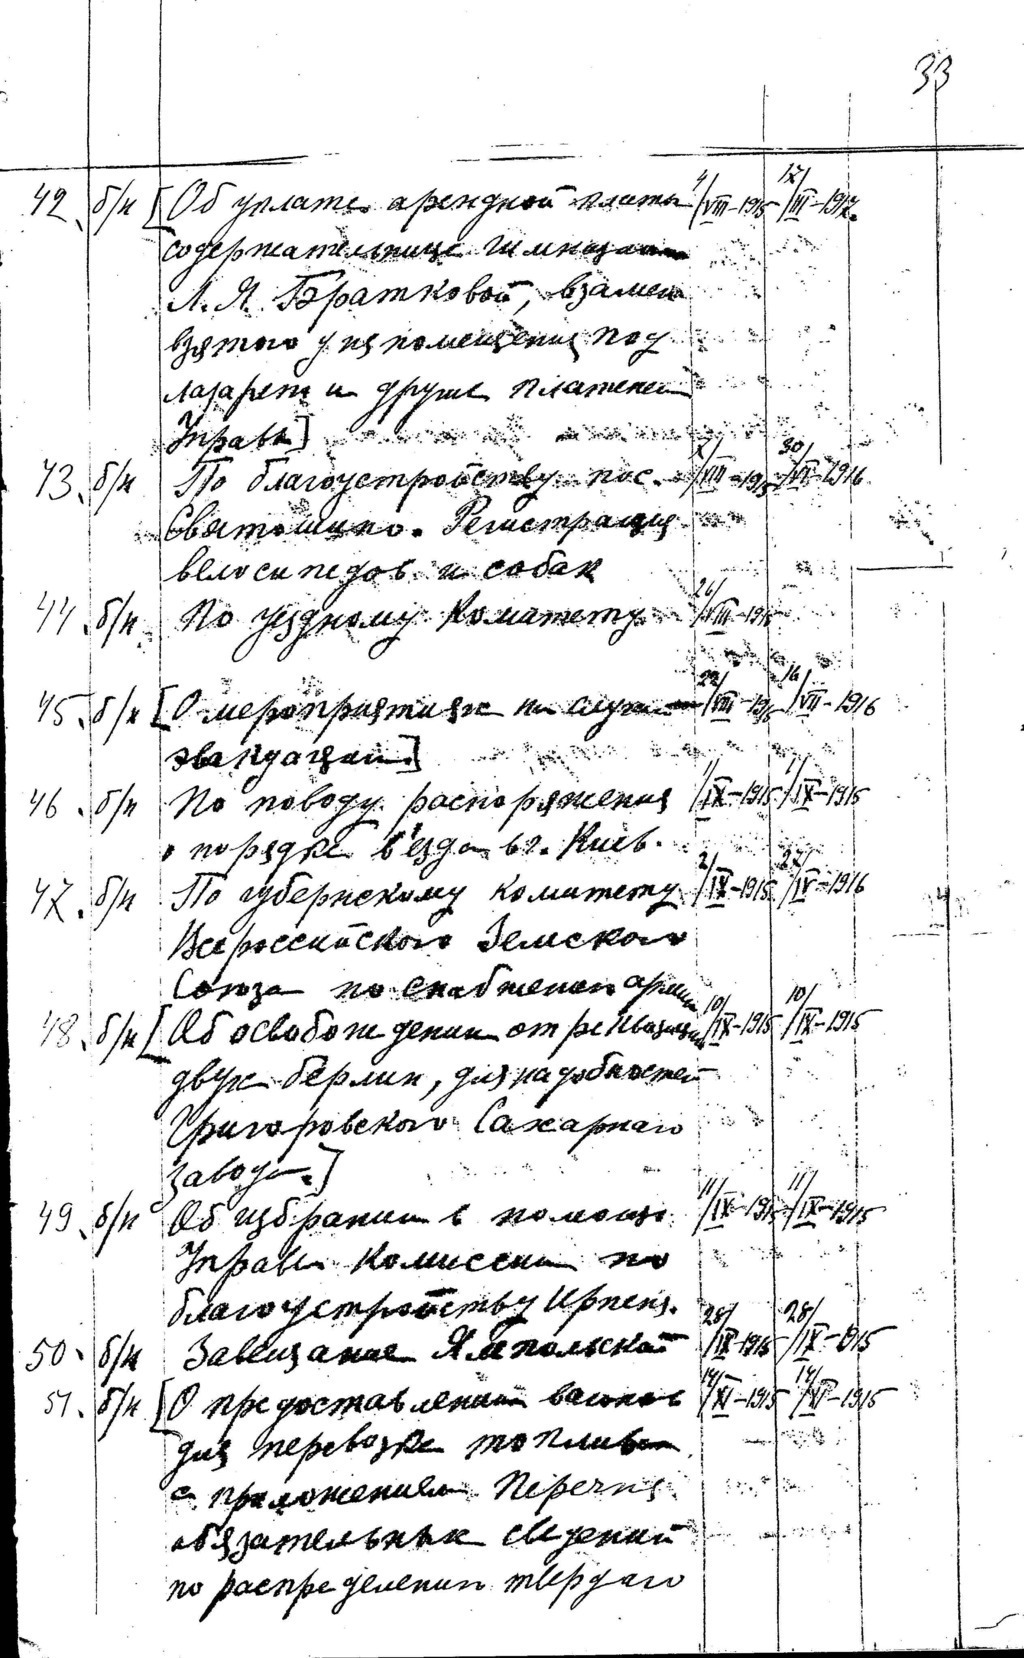 33
42. б/н [Об уплате арендной платы 4/VIII-1915 12/III-1917.
содержательнице гимназии
Л. Я. Братковой, взамен
взятого у ня помещения под
лазарет и другие платежи
Управы]
43. б/н По благоустройству пос. 2/VIII-1915 30/VI-1916
Святошино. Регистрация
велосипедов и собак
44. б/н По уездному Комитету 26/VIII-1915
45. б/н [О мероприятиях на случай 22/VIII-1915 16/VIII-1916
эвакуации.]
46. б/н По поводу распоряжения 1/IX-1915 1/IX-1915
о порядке в'езда в г. Киев.
47. б/н По губернскому комитету 2/IX-1915 27/IV-1916
Всероссийского Земского
Союза по снабжению армии
48. б/н [Об освобождении от реквизиции 10/IX-1915 10/IX-1915
двух берлин, для надобностей
Григоровского Сахарного
завода.]
49. б/н Об избрании в помощь 11/IX-1915 11/IX-1915
Управы Комиссии по
благоустройству Ирпеня.
50. б/н Завещание Ямпольской 28/IX-1915 28/IX-1915
51. б/н [О предоставлении вагонов 14/XI-1915 14/XI-1915
для перевозки топлива
с приложением Перечня
обязательных сведений
по распределению твердого